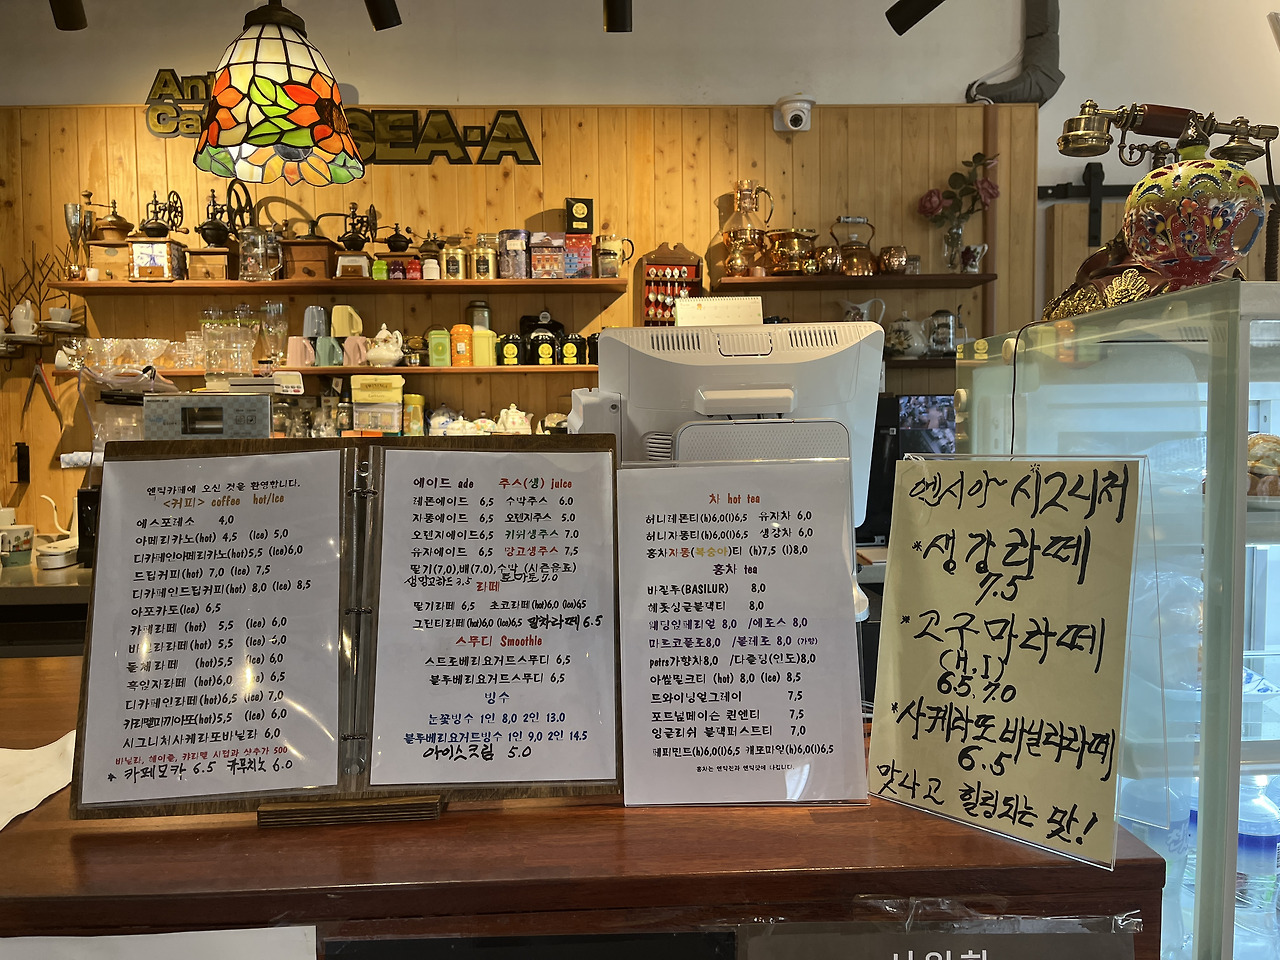 SEA·A
엔틱카페에 오신 것을 환영합니다.
<커피> coffee hot/Ice
에스포레소 4,0
아메리카노(hot) 4,5 (Ice) 5,0
디카페인아메리카노(hot)5,5 (Ice)6,0
드립커피(hot) 7,0 (Ice) 7,5
디카페인드립커피(hot) 8,0 (Ice) 8,5
아포카도(Ice) 6,5
카페라떼 (hot) 5,5 (Ice) 6,0
바닐라라떼 (hot) 5,5 (Ice) 6,0
돌체라떼 (hot)5,5 (Ice) 6,0
흑임자라떼 (hot)6,0 (Ice) 6,5
디카페인라떼 (hot)6,5 (Ice) 7,0
카라멜마끼아또(hot)5,5 (Ice) 6,0
시그니처사케라또바닐라 (Ice) 6,0
바닐라, 헤이즐, 카라멜 시럽과 샷추가 500
* 카페모카 6.5 카푸치노 6.0
에이드 ade 주스(생) juice
레몬에이드 6,5 수박주스 6.0
자몽에이드 6,5 오렌지주스 5.0
오렌지에이드 6.5 키위생주스 7.0
유자에이드 6.5 망고생주스 7,5
딸기(7,0),배(7.0), 수박 (시즌음료)
생망고하드 3.5 토마토 7.0
라떼
딸기라떼 6,5 초코라떼(hot)6,0 (Ice)6,5
그린티라떼(hot)6,0 (Ice)6,5 말차라떼 6.5
스무디 Smoothie
스트로베리요거트스무디 6,5
블루베리요거트스무디 6.5
빙수
눈꽃빙수 1인 8,0 2인 13.0
블루베리요거트빙수 1인 9,0 2인 14.5
아이스크림 5.0
차 hot tea
허니레몬티(h)6,0(I)6,5 유자차 6,0
허니자몽티(h)6,0(I)6,5 생강차 6,0
홍차자몽(복숭아)티 (h)7,5 (I)8,0
홍차 tea
바질루(BASILUR) 8,0
헤롯싱글블랙티 8,0
웨딩임페리얼 8,0 /에로스 8,0
마르코폴로8,0 /볼레로 8,0 (가향)
petrs가향차8,0 /다즐링(인도)8,0
아쌈밀크티 (hot) 8,0 (Ice) 8,5
트와이닝얼그레이 7,5
포트넘메이슨 퀸엔티 7,5
잉글리쉬 블랙퍼스트티 7.0
페퍼민트(h)6,0(I)6,5 캐모마일(h)6,0(I)6,5
홍차는 엔틱잔과 엔틱팟에 나갑니다.
엔시아~ 시그니처
*생강라떼
7.5
*고구마라떼
(H.I)
6.5.7.0
*사케라또바닐라라떼
6.5
맛나고 힐링되는 맛!